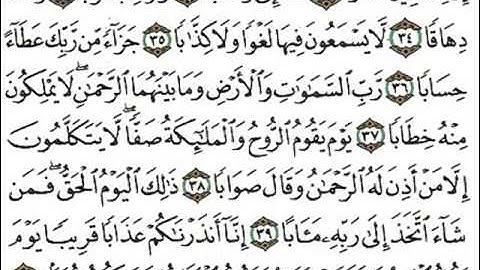 دِهَاقًا ﴿٣٤﴾ لَّا يَسْمَعُونَ فِيهَا لَغْوًا وَلَا كِذَّٰبًا ﴿٣٥﴾ جَزَآءً مِّن رَّبِّكَ عَطَآءً
حِسَابًا ﴿٣٦﴾ رَّبِّ ٱلسَّمَٰوَٰتِ وَٱلْأَرْضِ وَمَا بَيْنَهُمَا ٱلرَّحْمَٰنِ ۖ لَا يَمْلِكُونَ
مِنْهُ خِطَابًا ﴿٣٧﴾ يَوْمَ يَقُومُ ٱلرُّوحُ وَٱلْمَلَٰٓئِكَةُ صَفًّا ۖ لَّا يَتَكَلَّمُونَ
إِلَّا مَنْ أَذِنَ لَهُ ٱلرَّحْمَٰنُ وَقَالَ صَوَابًا ﴿٣٨﴾ ذَٰلِكَ ٱلْيَوْمُ ٱلْحَقُّ ۖ فَمَن
شَآءَ ٱتَّخَذَ إِلَىٰ رَبِّهِۦ مَـَٔابًا ﴿٣٩﴾ إِنَّآ أَنذَرْنَٰكُمْ عَذَابًا قَرِيبًا يَوْمَ